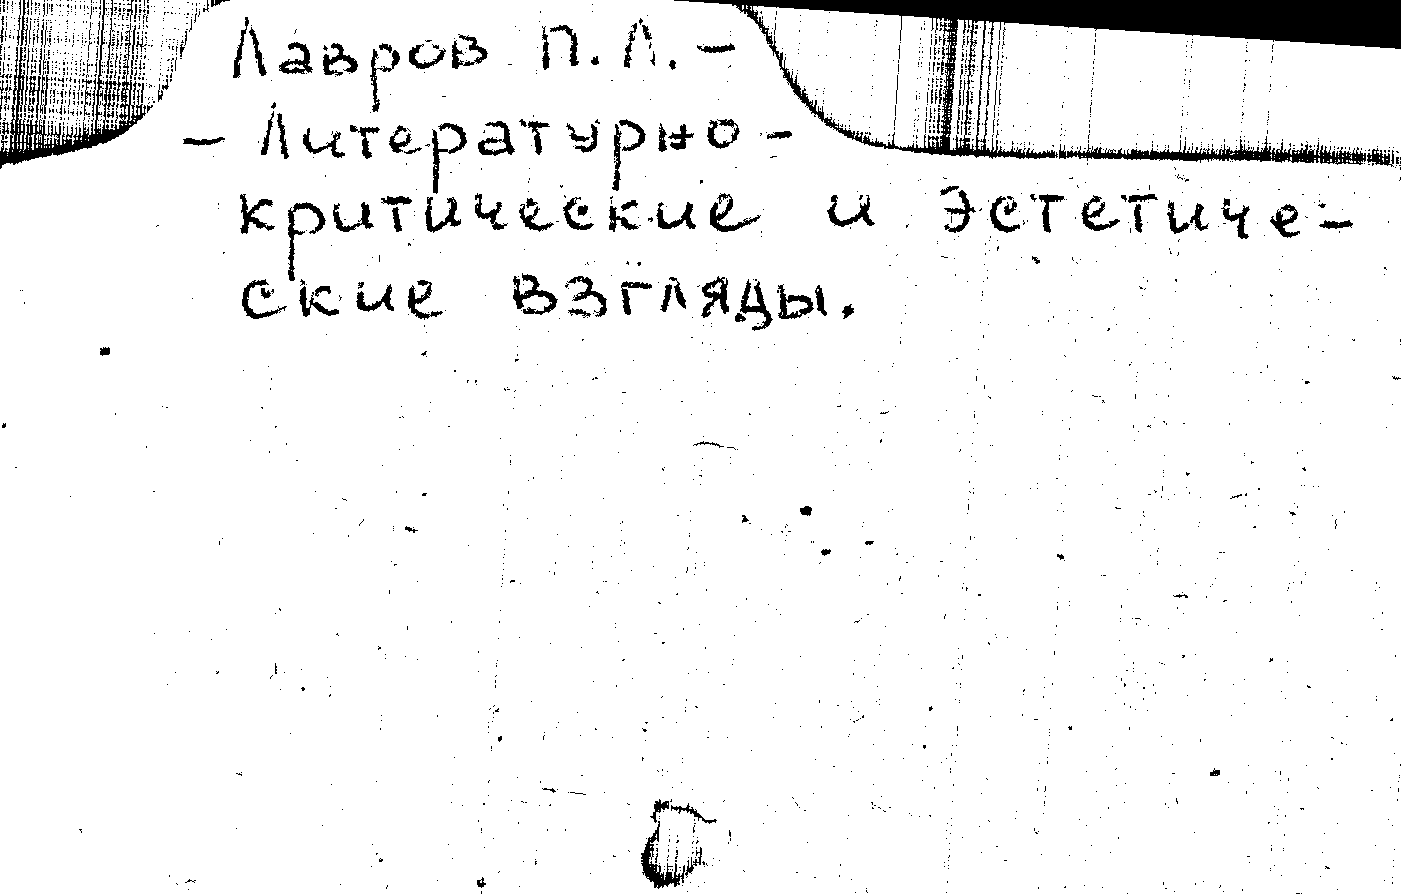 Лавров П.Л. –
– Литературно-
критические и эстетиче-
ские взгляды.